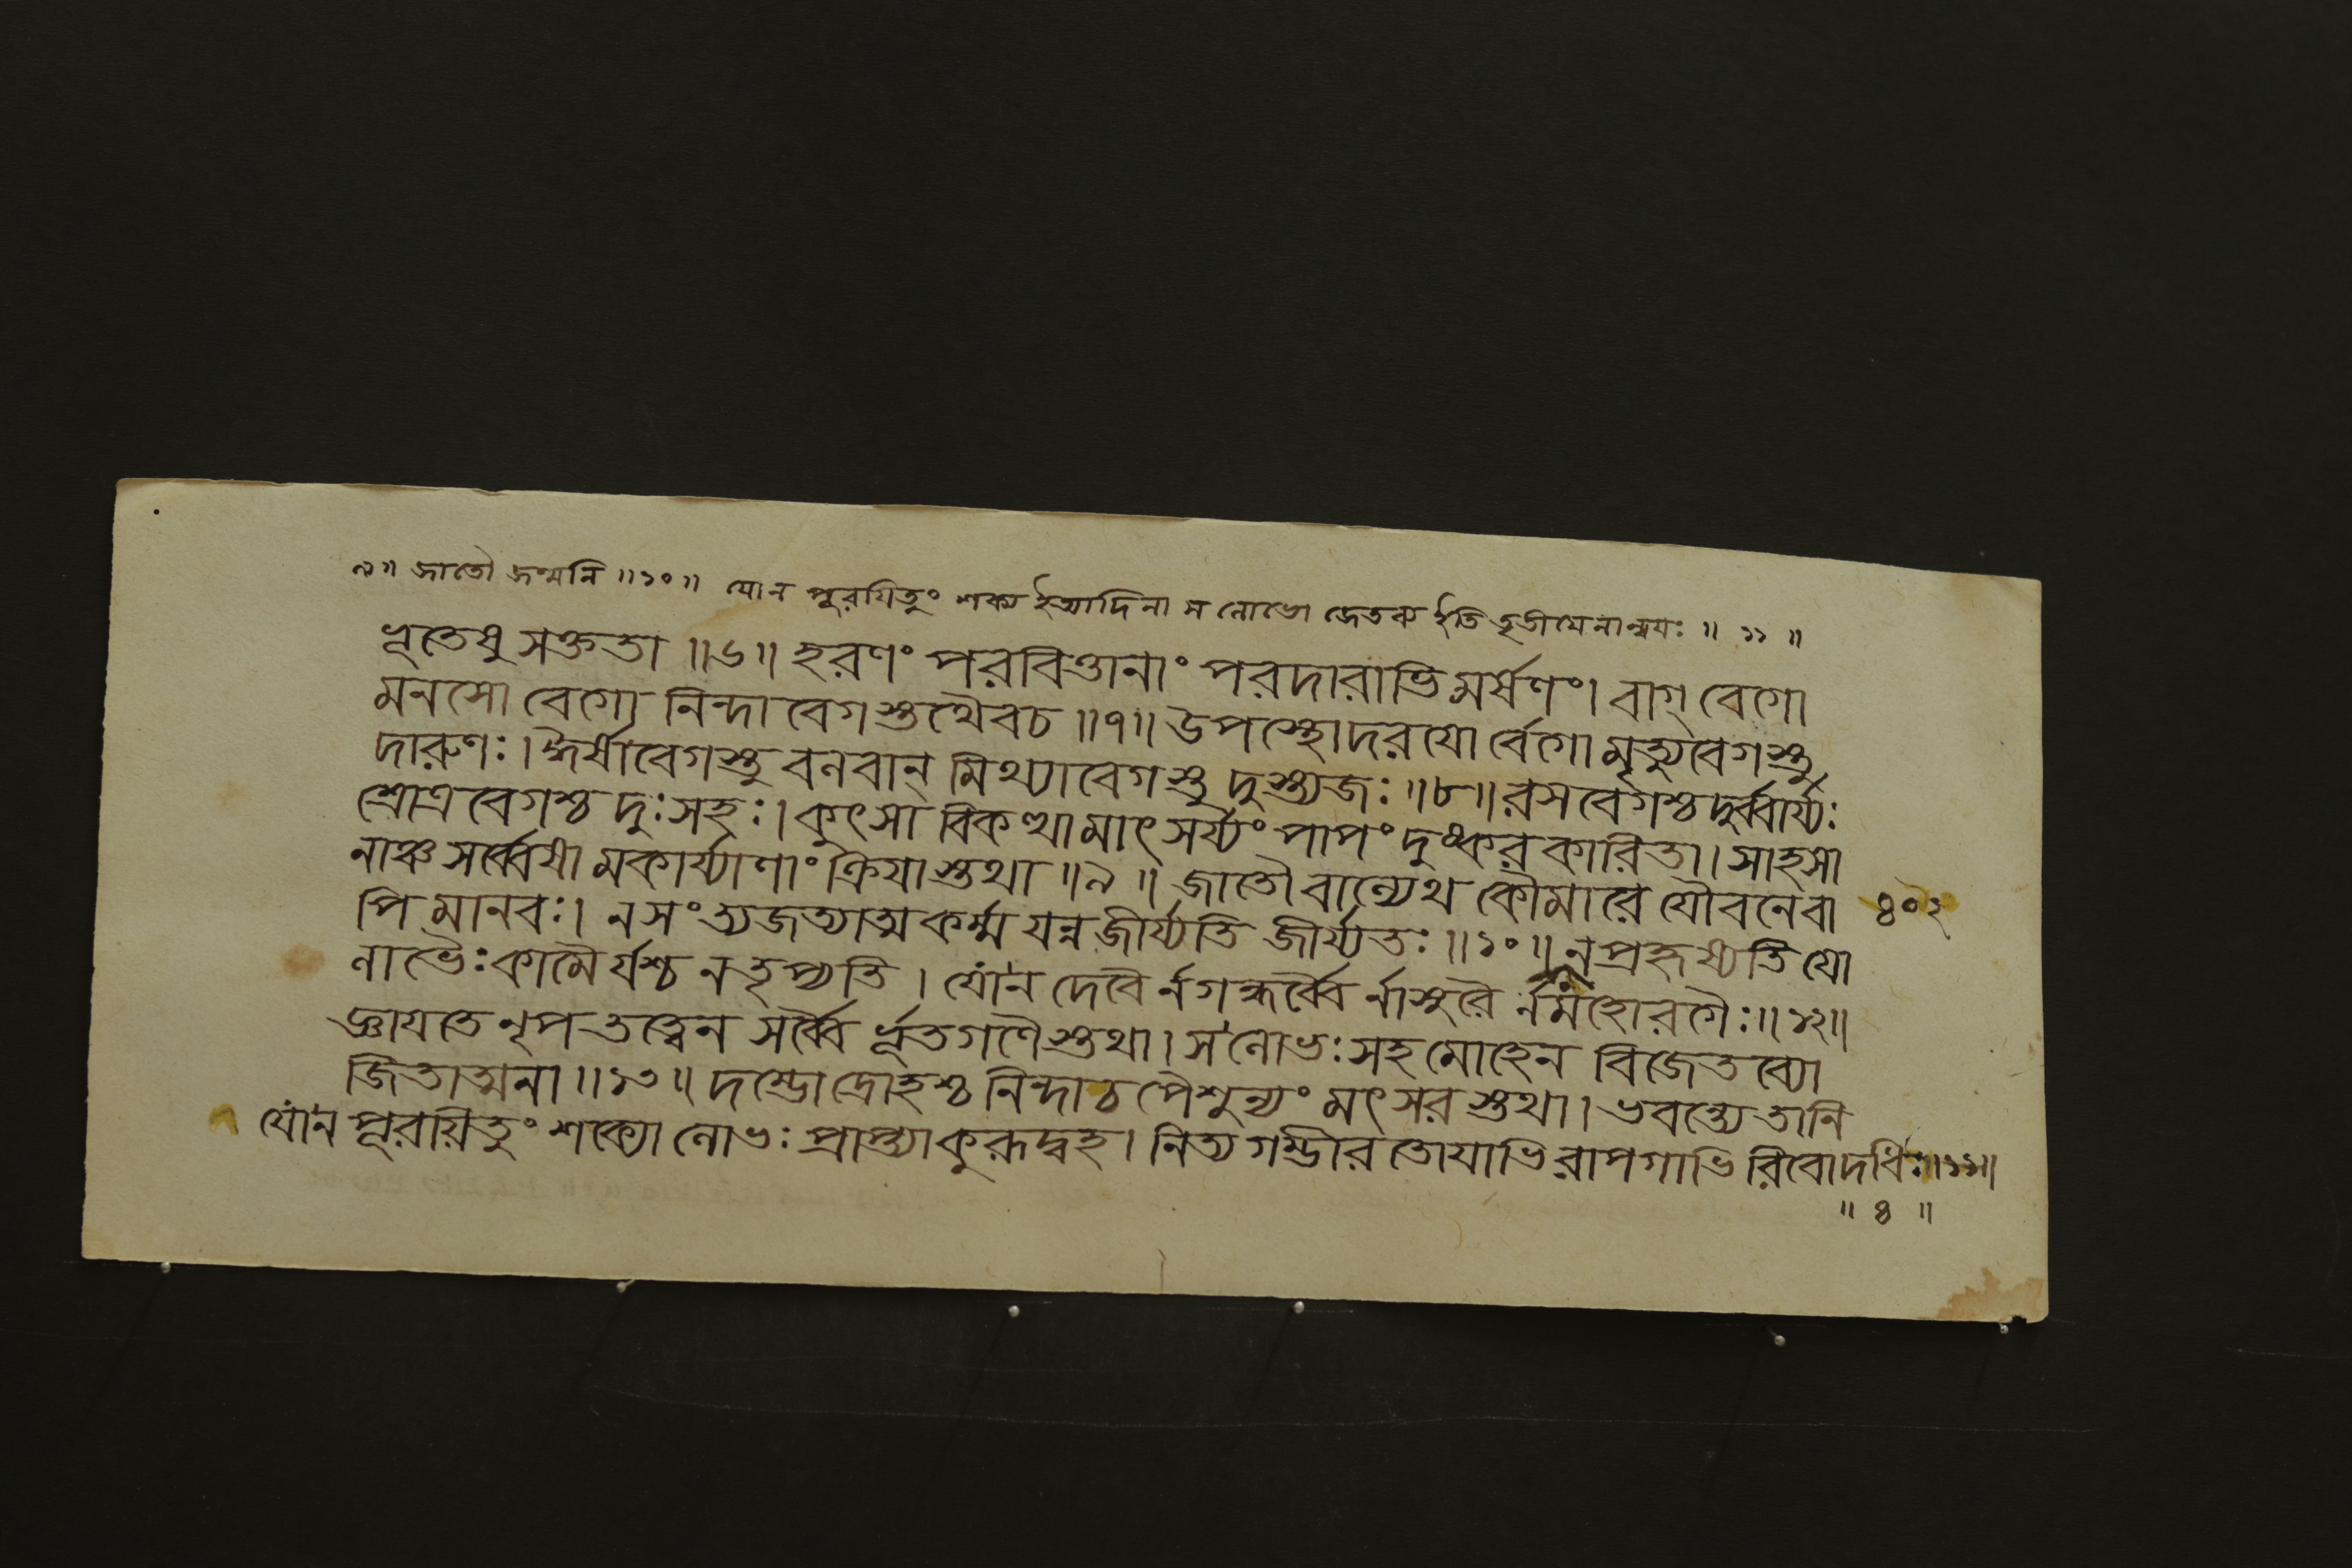 ৯॥ জাতৌ জন্মনি ॥১০॥ যোন পুরয়িতুং শক্য ইত্যাদিনা স লোভো জেতব্য ইতি তৃতীয়েনান্বয়ঃ ॥ ১১ ॥
ভূতেষু সক্ততা ॥৬॥ হরণং পরবিত্তানাং পরদারাভিমর্ষণং। বাগ্ বেগো
মনসো বেগো নিন্দা বেগ স্তথৈবচ ॥৭॥ উপস্থোদরযো র্বেগো মৃত্যুবেগস্তু
দারুণঃ। ঈর্ষাবেগস্তু বলবান্ মিথ্যাবেগস্তু দুস্ত্যজঃ ॥৮॥ রসবেগশ্চ দুর্ব্বার্য্যঃ
শ্রোত্রবেগশ্চ দুঃসহঃ। কুৎসা বিকত্থা মাৎসর্য্যং পাপং দুষ্কর কারিতা। সাহসা
নাঞ্চ সর্ব্বেষা মকার্য্যাণাং ক্রিযাস্তথা ॥৯॥ জাতৌ বাল্যেথ কৌমারে যৌবনেবা
পি মানবঃ। নসংত্যজত্যাত্মকর্ম্ম যন্নজীর্য্যতি জীর্য্যতঃ ॥১০॥ ন প্রহৃষ্যতি যো
৪০২
লাভৈঃ কামৈর্যশ্চ ন তৃপ্যতি। যোন দেবৈ র্নগন্ধর্ব্বৈ র্নাসুরৈ র্নমহোরগৈঃ ॥১২॥
জ্ঞাযতে নৃপতত্ত্বেন সর্ব্বৈ র্ভূতগণৈ স্তথা। স লোভঃ সহ মোহেন বিজেতব্যো
জিতাত্মনা ॥১৩॥ দম্ভোদ্রোহশ্চ নিন্দাচ পৈশুন্যং মৎসর স্তথা। ভবন্ত্যে তানি
যোন পূরয়িতুং শক্যো লোভঃ প্রাপ্ত্যা কুরূদ্বহ। নিত্য গম্ভীর তোযাভি রাপগাভি রিবোদধিঃ ॥১১॥
॥ ৪ ॥